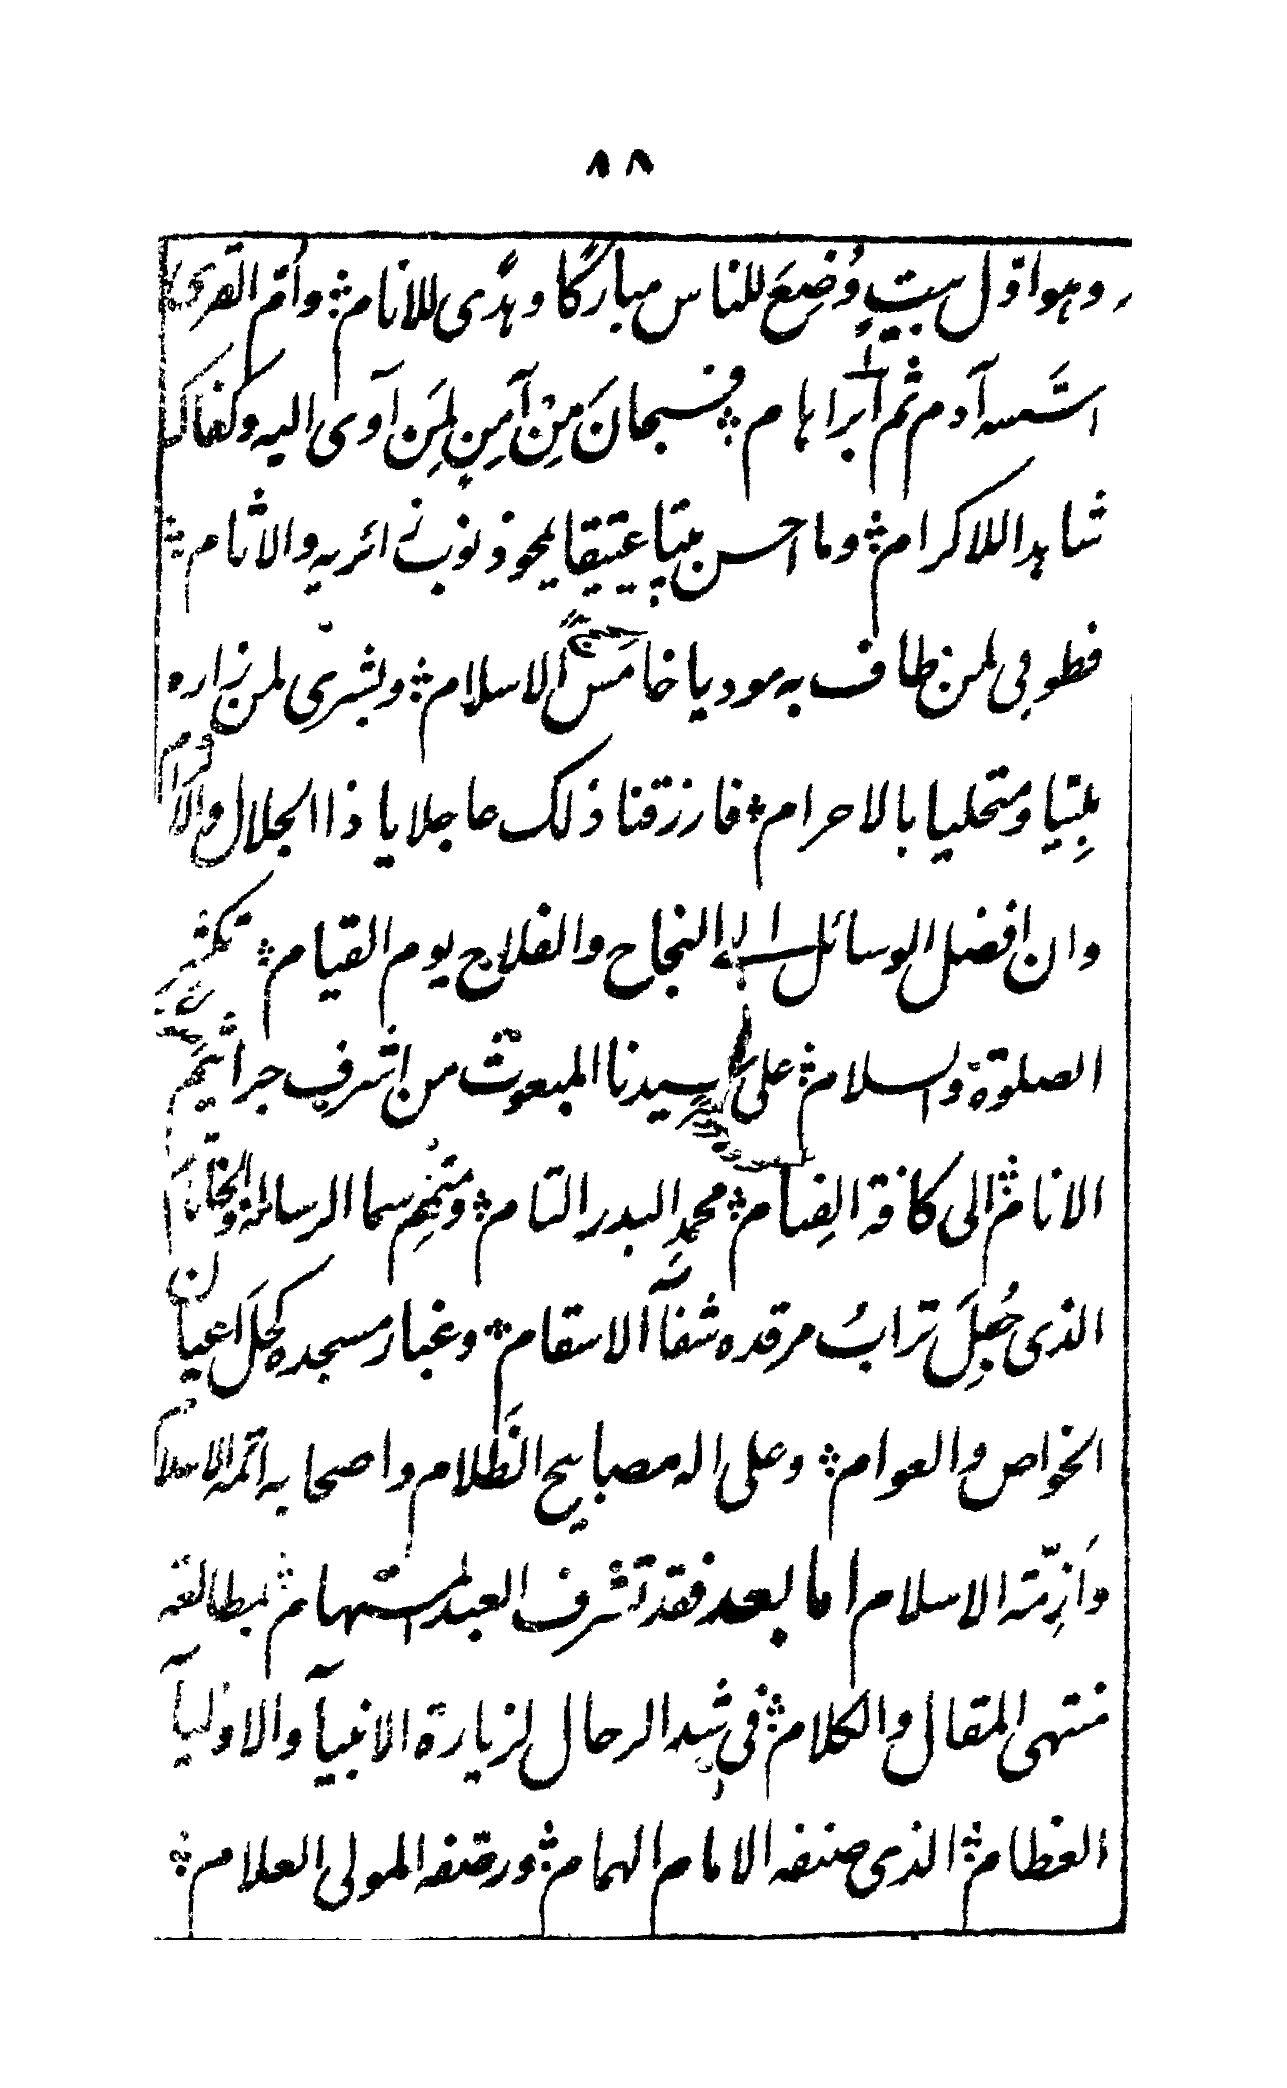 ٨٨
وهو اوّل بيتٍ وُضِعَ للناس مباركًا وهدًى للانام ؞ واُمّ القرى
اسّسه آدم ثم ابراهام ؞ فسبحانَ مِن آمنِ لمَن آوى اليه وكفاك
شاهدا للاكرام ؞ وما احسن بيتا عتيقا يمحو ذنوب زائريه والاثام ؞
فطوبى لمن طاف به موديا خامس الاسلام ؞ وبشرى لمن زاره
ملبّيا ومتحليا بالاحرام ؞ فارزقنا ذلك عاجلا يا ذا الجلال والاكرام
وان افضل الوسائل الى النجاح والفلاح يوم القيام ؞ تكثير
الصلوة والسلام ؞ على سيدنا المبعوث من اشرف جراثيم
الانام ؞ الى كافة الفِئام ؞ محمدٍ البدر التام ؞ ومتمِّم سما الرسالة والختام
الذى جُعِلَ ترابُ مرقده شفآ الاسقام ؞ وغبار مسجده كحلَ اعيان
الخواص والعوام ؞ وعلى اله مصابيح الظَّلام واصحابه ائمة الاسلام
وَازِمّة الاسلام اما بعد فقد تشرف العبد المستهام ؞ بمطالعة
منتهى المقال والكلام ؞ فى شد الرحال لزيارة الانبيآ والاوليآ
العظام ؞ الذى صنفه الامام الهمام ؞ ورصّفه المولى العلام ؞